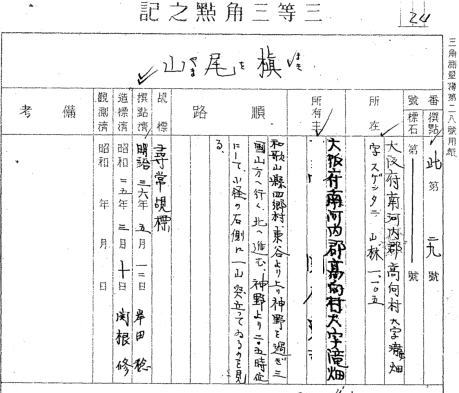 三等三角點之記
24
三角測量簿第二八號用紙
槇尾山
番號 撰點 此 第 二九 號
標石 第 號
所在 大阪府南河内郡高向村大字滝畑
字スゲンタニ 山林 一、一〇五
所有主 大阪府南河内郡高向村大字滝畑
順路 和歌山縣四郷村東谷より上り神野を過ぎ三
國山方へ行く、北へ進む、神野より二.〇五時位
にして小径の右側に一山突立ってゐるのを見
る
覘標 尋常覘標
撰點濟 明治三六年五月一二日
造標濟 昭和二五年三月十日 関根修
觀測濟 昭和 年 月 日
備考